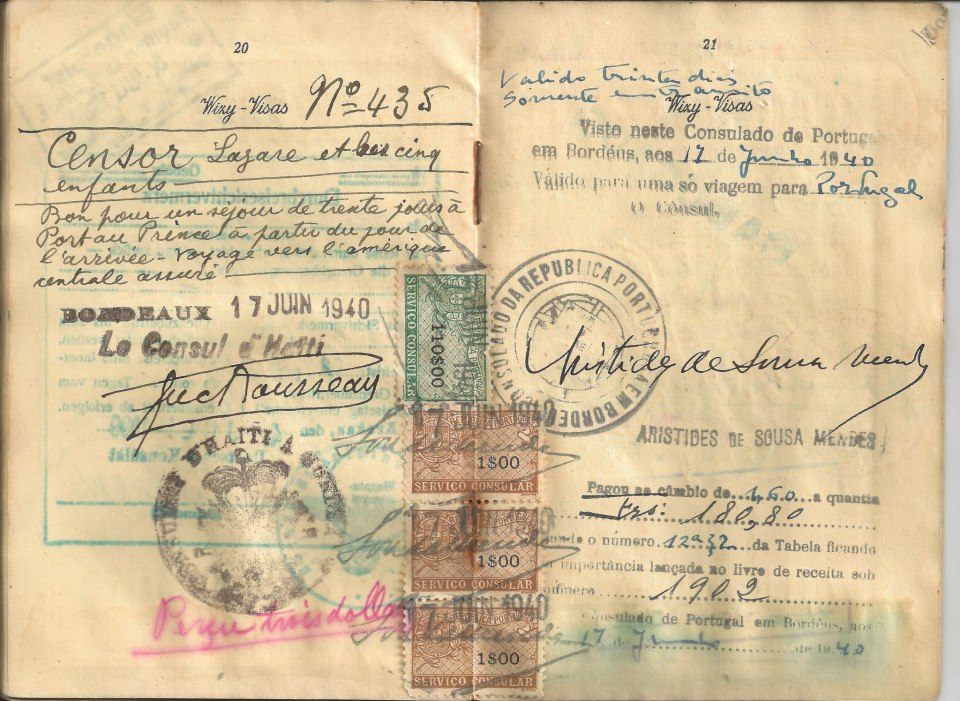 20
Wizy-Visas Nº 435
Censor Lazare et ses cinq
enfants
Bon pour un séjour de trente jours à
Port au Prince à partir du jour de
l'arrivée - Voyage vers l'amérique
centrale assuré
BORDEAUX 17 JUIN 1940
Le Consul d'Haïti
D'HAITI A
Perçu trois dollars
SERVICO CONSULAR
110$00
17 JUIN 1940
1$00
SERVICO CONSULAR
1$00
SERVICO CONSULAR
17 JUIN 1940
1$00
SERVICO CONSULAR
21
Valido trinta dias
Somente em transito
Wizy-Visas
Visto neste Consulado de Portugal
em Bordéus, aos 17 de Junho 1940
Válido para uma só viagem para Portugal
O Cônsul,
CONSULADO DA REPUBLICA PORTUGUESA EM BORDEUS
Aristides de Sousa Mendes
ARISTIDES DE SOUSA MENDES
Pagou ao câmbio de 460 a quantia
Frs: 180,80
o número da Tabela ficando
importância lançada no livre de receita sob
número 1902
Consulado de Portugal em Bordéus, aos
17 de Junho de 1940